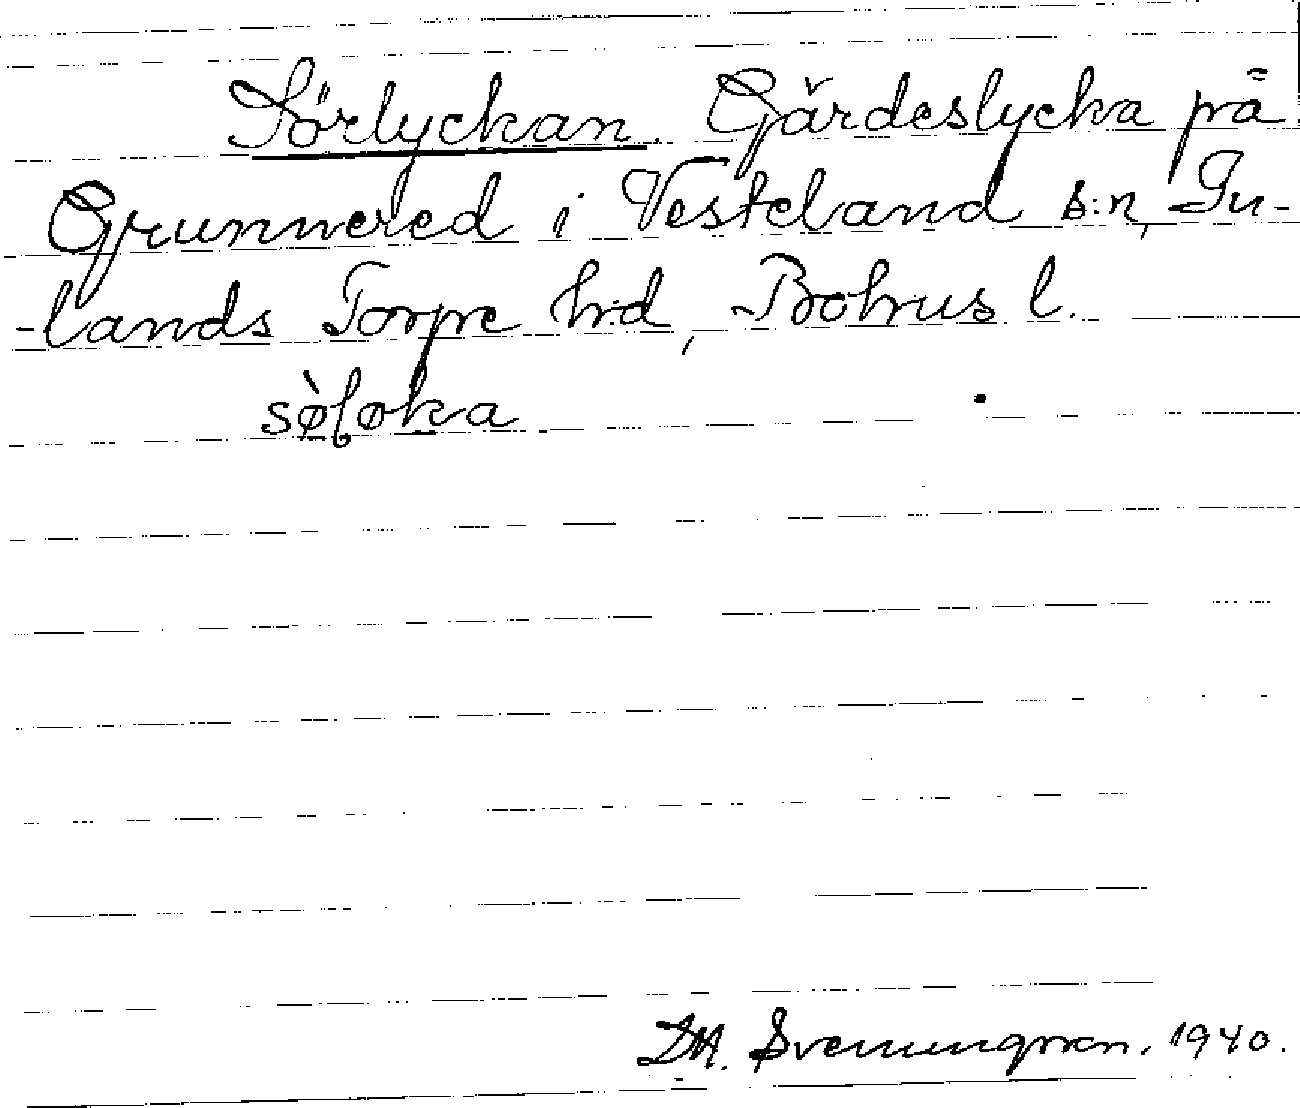 Sörlyckan. Gärdeslycka på
Grunnered i Vesteland s:n, In-
-lands Torpe h:d, Bohus l.
sø̀ɭøka
D.H. Svenungsson. 1940.